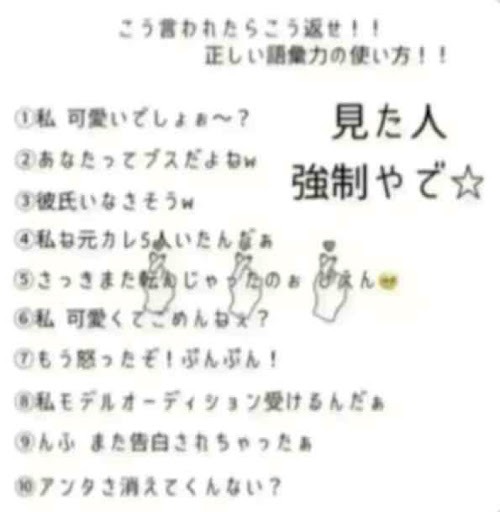 こう言われたらこう返せ！！
正しい語彙力の使い方！！
①私 可愛いでしょぉ～？
②あなたってブスだよねw
③彼氏いなさそうw
④私ね元カレ5人いたんだぁ
⑤さっきまた転んじゃったのぉ ぴえん🥺
⑥私 可愛くてごめんねぇ？
⑦もう怒ったぞ！ぷんぷん！
⑧私モデルオーディション受けるんだぁ
⑨んふ また告白されちゃったぁ
⑩アンタさ消えてくんない？
見た人
強制やで☆